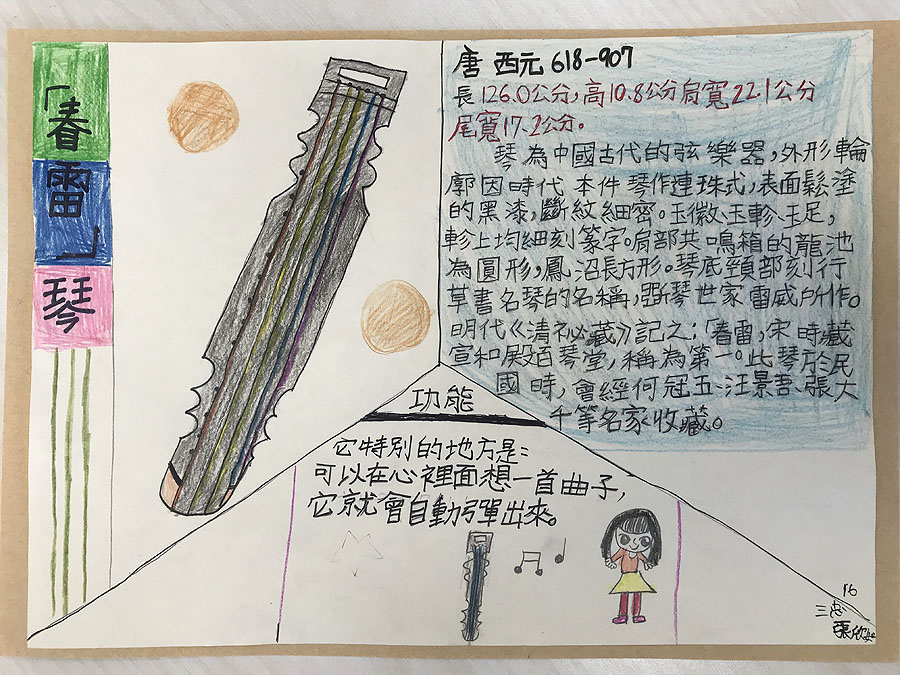 「春雷」琴
唐 西元 618-907
長 126.0公分,高10.8公分肩寬22.1公分
尾寬17.2公分。
琴為中國古代的弦樂器,外形輪
廓因時代 本件琴作連珠式,表面鬆塗
的黑漆,斷紋細密。玉徽、玉軫、玉足,
軫上均細刻篆字。肩部共鳴箱的龍池
為圓形,鳳沼長方形。琴底頸部刻行
草書名琴的名稱,斲琴世家雷威所作。
明代《清祕藏》記之:「春雷,宋時藏
宣和殿百琴堂,稱為第一。此琴於民
國時,會經何冠五、汪景吾、張大
千等名家收藏。
功能
它特別的地方是:
可以在心裡面想一首曲子,
它就會自動彈出來。
16
三忠
張欣